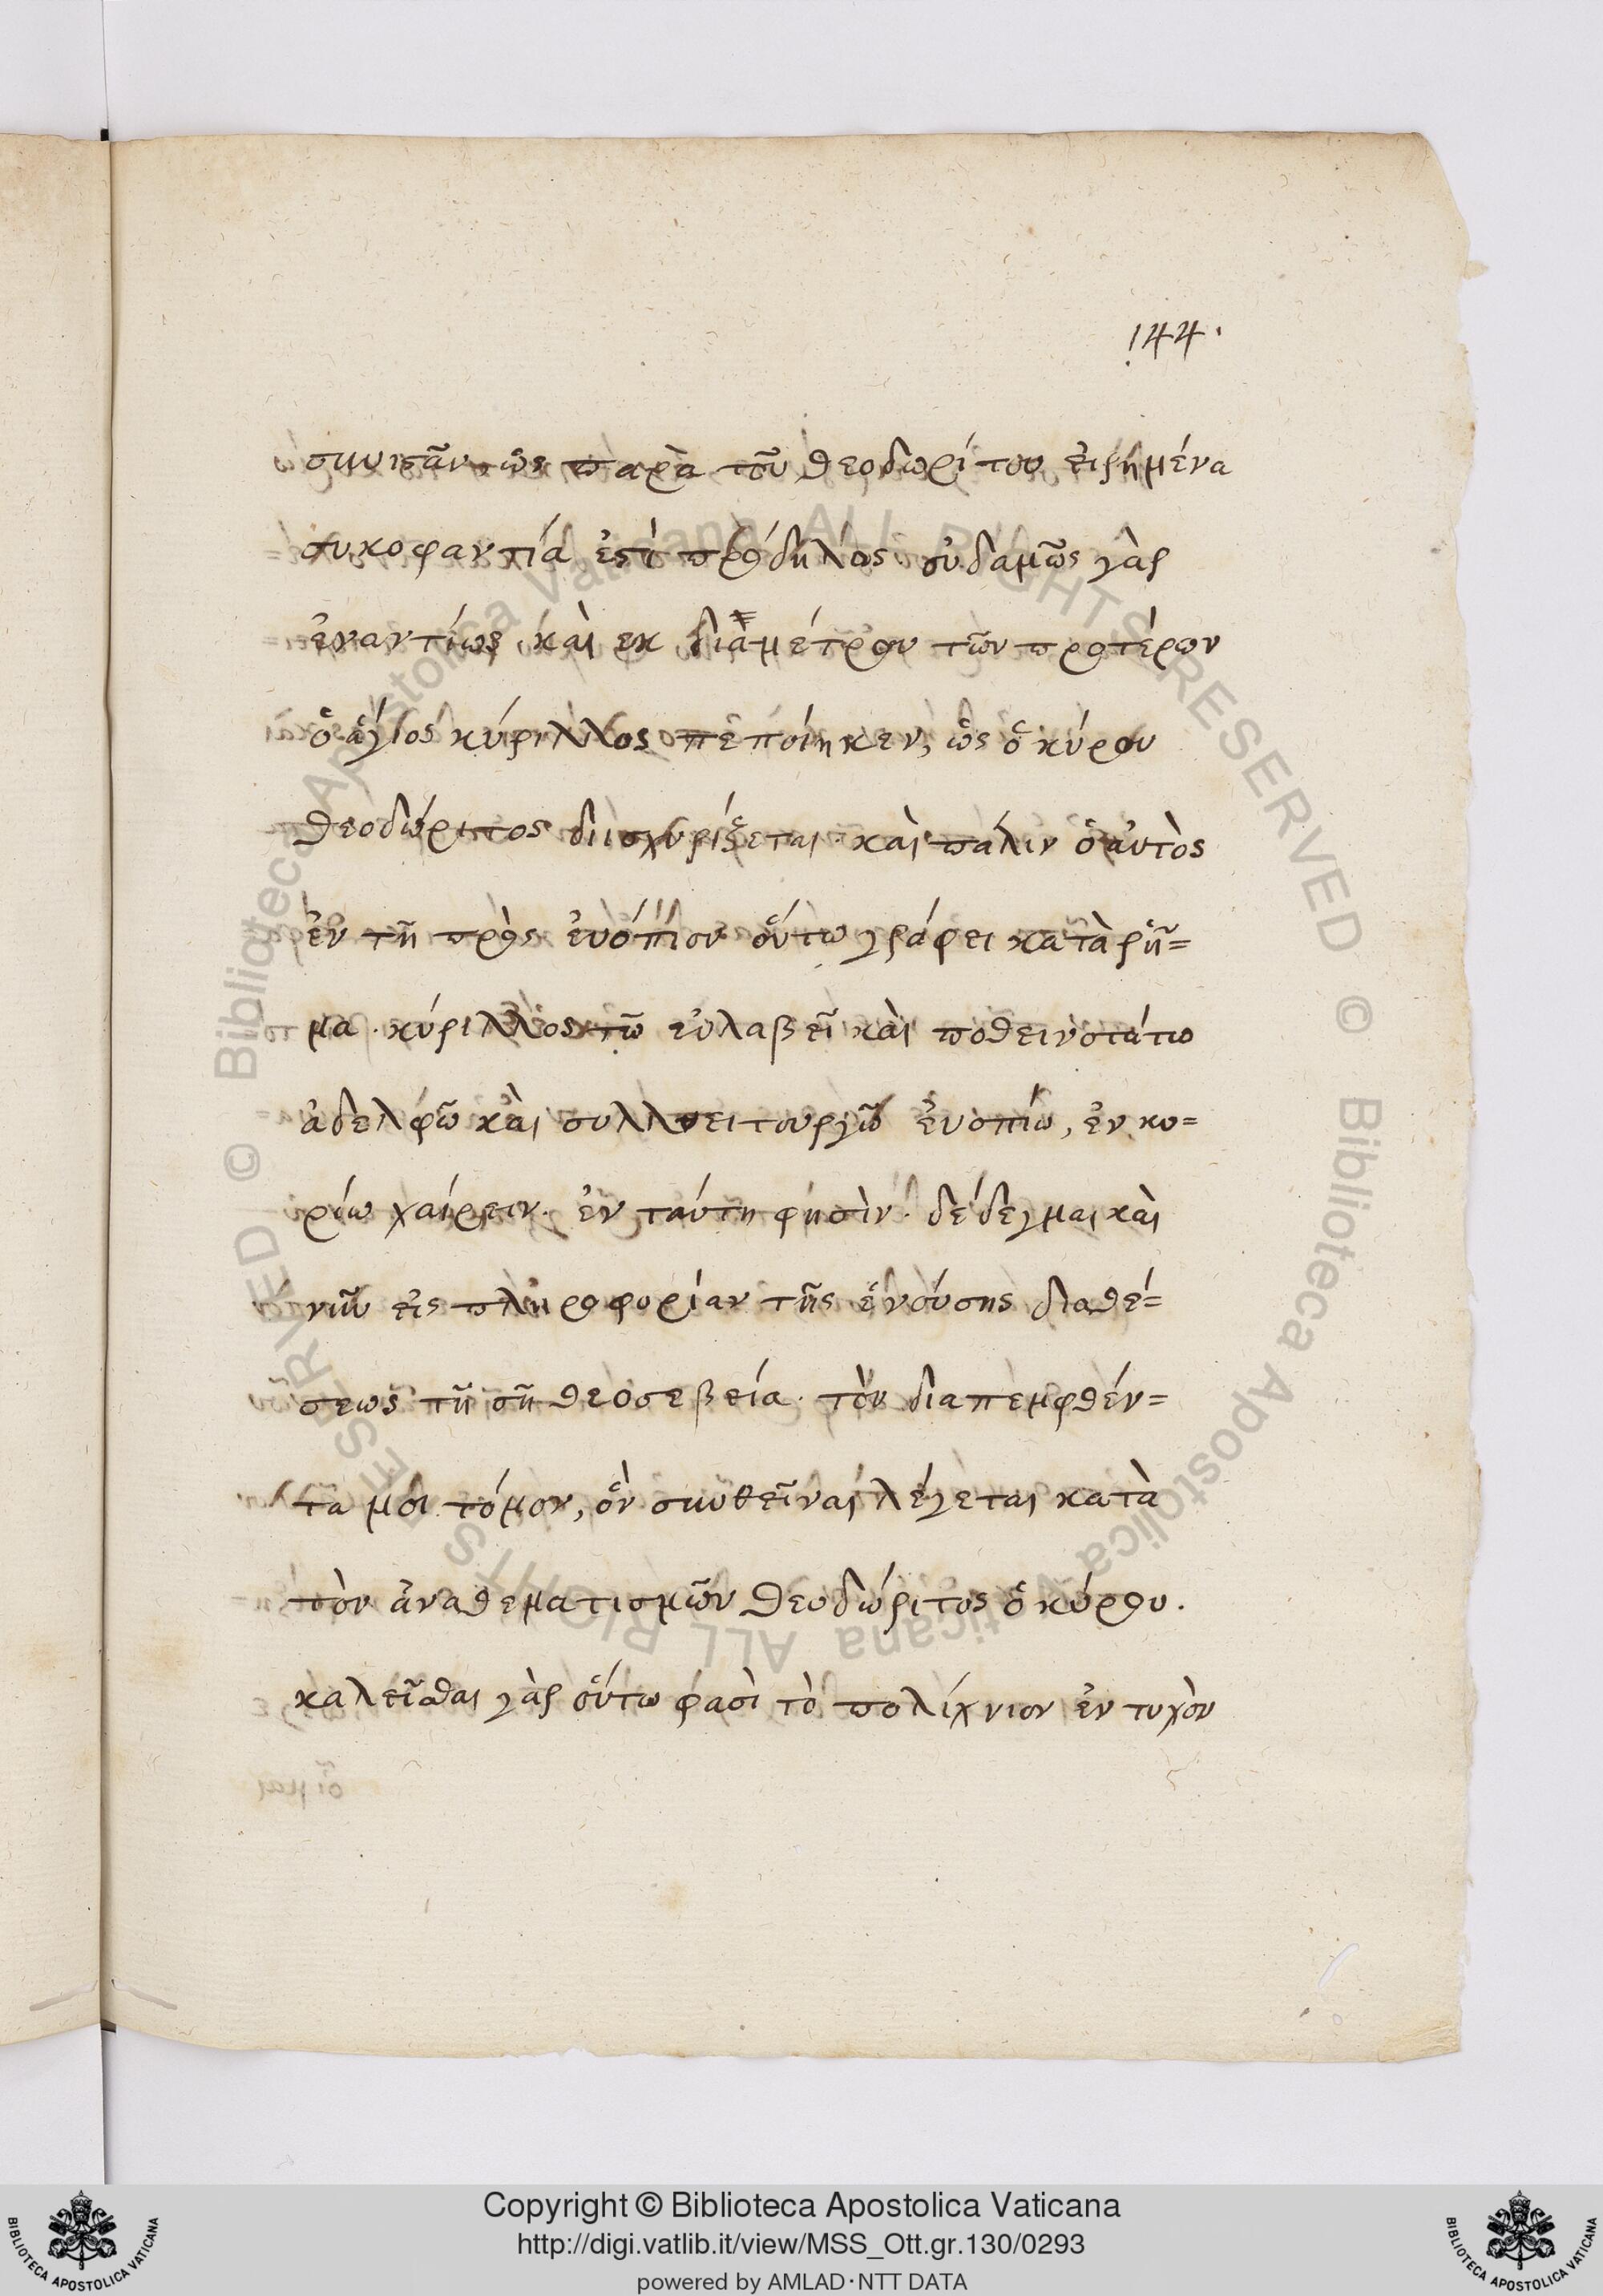 144.
συνιστᾶν. ὡς παρὰ τοῦ θεοδωρίτου εἰρημένα
συκοφαντία ἐστὶ πρόδηλος. οὐδαμῶς γὰρ
ἐναντίως καὶ εκ διαμέτρου τῶν προτέρων
ὁ ἅγιος κύριλλος πεποίηκεν, ὡς ὁ κύρου
θεοδώριτος διισχυρίζεται. καὶ πάλιν ὁ αὐτὸς
ἐν τῆ πρὸς ἐυόπιον οὕτω γράφει κατὰ ῥῆ=
μα. κύριλλος τῶ εὐλαβεῖ καὶ ποθεινοτάτω
ἀδελφῶ καὶ συλλειτουργῶ ἐυοπίω, ἐν κυ=
ρίω χαίρειν. ἐν ταύτη φησὶν. δέδεγμαι καὶ
νῦν εἰς πληροφορίαν τῆς ἐνούσης διαθέ=
σεως τῆ σῆ θεοσεβεία. τὸν διαπεμφθέν=
τα μοι τόμον, ὃν συνθεῖναι λέγεται κατὰ
τὸν ἀναθεματισμῶν θεοδώριτος ὁ κύρου.
καλεῖσθαι γὰρ οὕτω φασὶ τὸ πολίχνιον ἐν τυχὸν
Copyright © Biblioteca Apostolica Vaticana
http://digi.vatlib.it/view/MSS_Ott.gr.130/0293
powered by AMLAD·NTT DATA
BIBLIOTECA APOSTOLICA VATICANA
BIBLIOTECA APOSTOLICA VATICANA
© Biblioteca Apostolica Vaticana ALL RIGHTS RESERVED
© Biblioteca Apostolica Vaticana ALL RIGHTS RESERVED